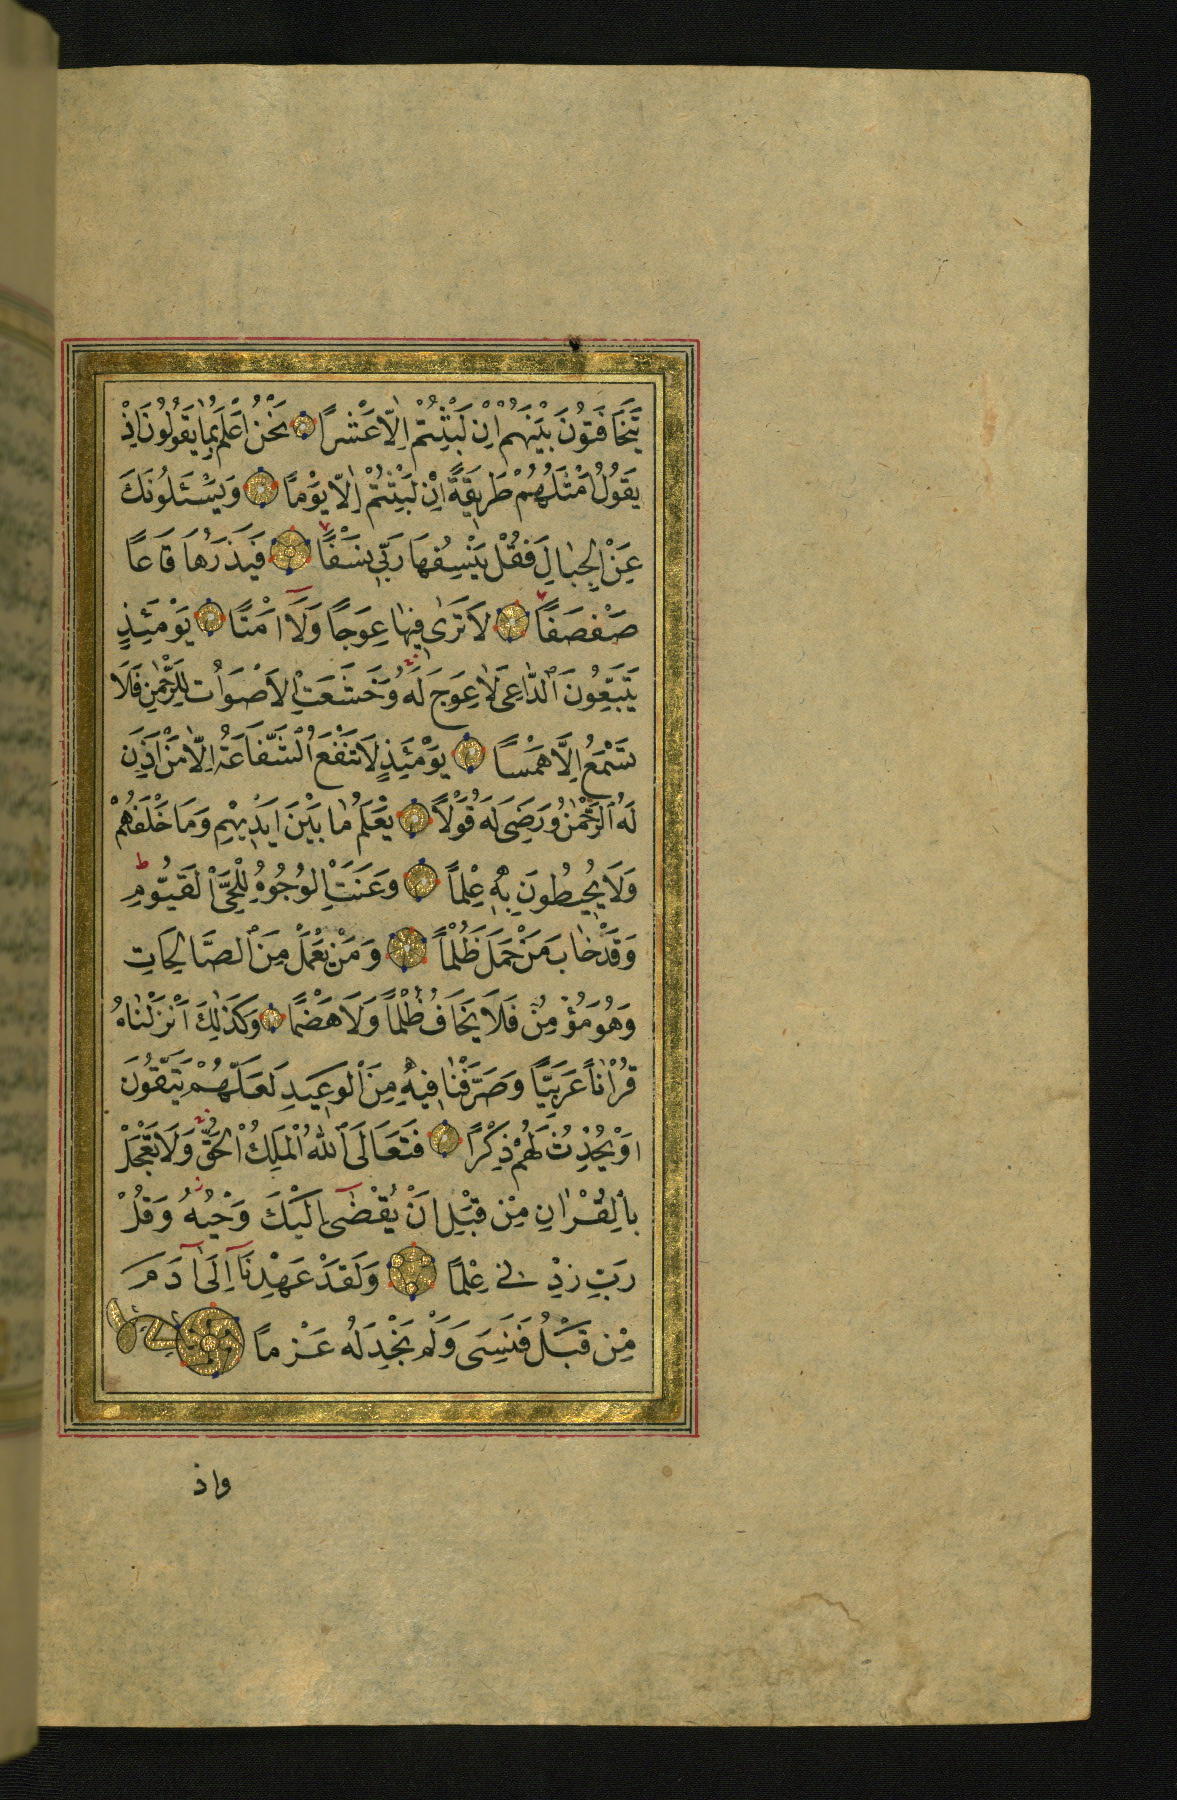 يَتَخَافَتُونَ بَيْنَهُمْ اِنْ لَبِثْتُمْ اِلَّا عَشْرًا نَحْنُ اَعْلَمُ بِمَا يَقُولُونَ اِذْ
يَقُولُ اَمْثَلُهُمْ طَرِيقَةً اِنْ لَبِثْتُمْ اِلَّا يَوْمًا وَيَسْـَٔلُونَكَ
عَنِ الْجِبَالِ فَقُلْ يَنْسِفُهَا رَبِّي نَسْفًا فَيَذَرُهَا قَاعًا
صَفْصَفًا لَا تَرٰى فِيهَا عِوَجًا وَلَا اَمْتًا يَوْمَئِذٍ
يَتَّبِعُونَ الدَّاعِىَ لَا عِوَجَ لَهُ وَخَشَعَتِ الْاَصْوَاتُ لِلرَّحْمٰنِ فَلَا
تَسْمَعُ اِلَّا هَمْسًا يَوْمَئِذٍ لَا تَنْفَعُ الشَّفَاعَةُ اِلَّا مَنْ اَذِنَ
لَهُ الرَّحْمٰنُ وَرَضِىَ لَهُ قَوْلًا يَعْلَمُ مَا بَيْنَ اَيْدِيهِمْ وَمَا خَلْفَهُمْ
وَلَا يُحِيطُونَ بِهِ عِلْمًا وَعَنَتِ الْوُجُوهُ لِلْحَىِّ الْقَيُّومِ
وَقَدْ خَابَ مَنْ حَمَلَ ظُلْمًا وَمَنْ يَعْمَلْ مِنَ الصَّالِحَاتِ
وَهُوَ مُؤْمِنٌ فَلَا يَخَافُ ظُلْمًا وَلَا هَضْمًا وَكَذٰلِكَ اَنْزَلْنَاهُ
قُرْاٰنًا عَرَبِيًّا وَصَرَّفْنَا فِيهِ مِنَ الْوَعِيدِ لَعَلَّهُمْ يَتَّقُونَ
اَوْ يُحْدِثُ لَهُمْ ذِكْرًا فَتَعَالَى اللّٰهُ الْمَلِكُ الْحَقُّ وَلَا تَعْجَلْ
بِالْقُرْاٰنِ مِنْ قَبْلِ اَنْ يُقْضٰى اِلَيْكَ وَحْيُهُ وَقُلْ
رَبِّ زِدْنِي عِلْمًا وَلَقَدْ عَهِدْنَا اِلٰى اٰدَمَ
مِنْ قَبْلُ فَنَسِىَ وَلَمْ نَجِدْ لَهُ عَزْمًا
واذ